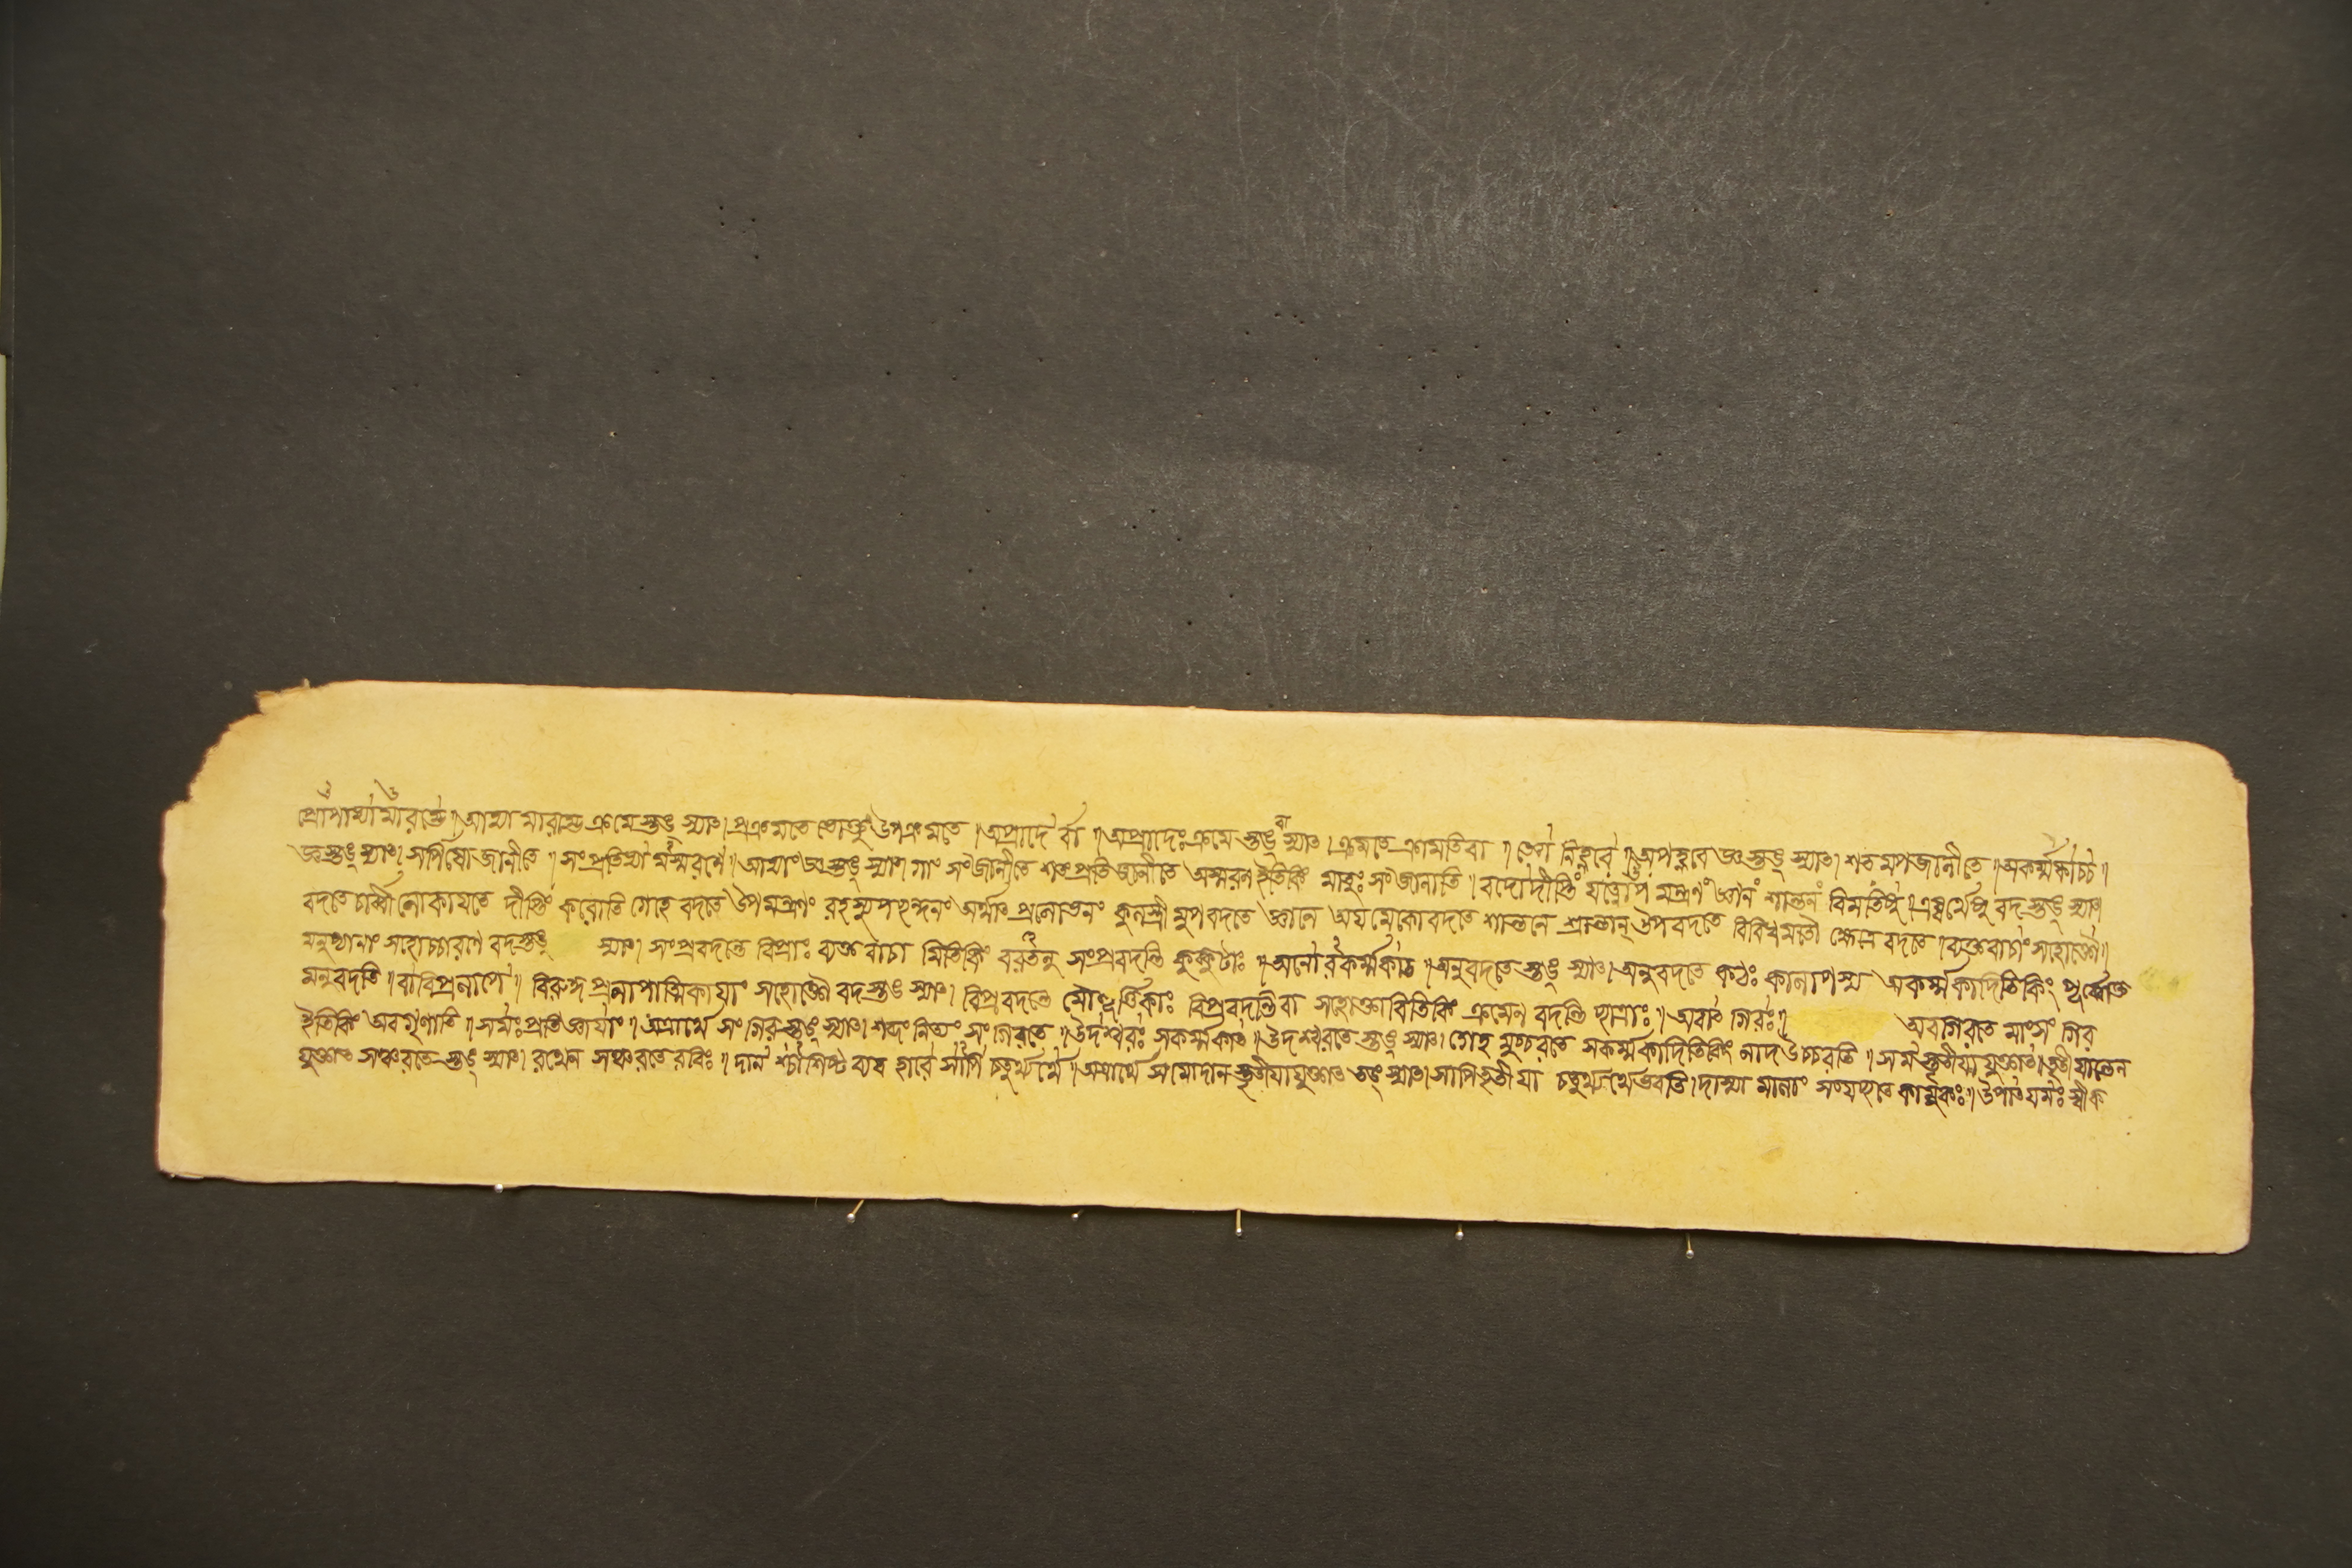 প্রোপাভ্যামারম্ভে॥ আভ্যামারম্ভে ক্রমেস্তঙ্ স্যাৎ। প্রক্রমতে ভোক্তুং উপক্রমতে॥ অপ্রাদের্বা॥ অপ্রাদেঃ ক্রমেস্তঙ্ বা স্যাৎ। ক্রমতে ক্রামতি বা॥ জ্ঞো নিহ্নবে॥ অপহ্নবে জ্ঞস্তঙ্ স্যাৎ। শতমপজানীতে॥ অকর্ম্মকাচ্চ॥
জ্ঞস্তঙ্ স্যাৎ। সর্পিষো জানীতে॥ সংপ্রতিভ্যামস্মরণে॥ আভ্যাং জ্ঞস্তঙ্ স্যাৎ। গাং সংজানীতে শতং প্রতিজানীতে অস্মরণ ইতি কিং মাতুঃ সংজানাতি॥ বদো দীপ্তি যত্নোপমন্ত্রণ জ্ঞান শান্তন বিমতিষু॥ এষ্বর্থেষু বদস্তঙ্ স্যাৎ।
বদতে চার্ব্বী লোকায়তে দীপ্তিং করোতি গেহে বদতে উপমন্ত্রণং রহস্যুপচ্ছন্দনং অর্থাৎ প্রলোভনং কুলস্ত্রীমুপবদতে জ্ঞানে অয়মেকো বদতে শান্তনে শ্রান্তান্ উপবদতে বিবিধমতৌ ক্ষেত্রে বদতে॥ ব্যক্তবাচাং সহোক্তৌ॥
মনুষ্যানাং সহোচ্চারণে বদস্তঙ্ স্যাৎ। সংপ্রবদন্তে বিপ্রাঃ ব্যক্তবাচামিতি কিং বরতনু সংপ্রবদন্তি কুক্কুটাঃ॥ অনোরকর্ম্মকাৎ॥ অনুবদতেস্তঙ্ স্যাৎ। অনুবদতে কঠঃ কালাপস্য অকর্ম্মকাদিতি কিং পূর্ব্বোক্ত
মনুবদতি॥ বা বিপ্রলাপে॥ বিরুদ্ধপ্রলাপাত্মিকায়াং সহোক্তৌ বদস্তঙ্ স্যাৎ। বিপ্রবদন্তে মৌহূর্ত্তিকাঃ বিপ্রবদন্তি বা সহোক্তাবিতি কিং ক্রমেন বদন্তি ছাত্রাঃ॥ অবাৎ গিরঃ॥ অবগিরতে মাংসং গির
ইতি কিং অবগৃণাতি॥ সমঃ প্রতিজ্ঞায়াং॥ অত্রার্থে সং গিরস্তঙ্ স্যাৎ। শব্দং নিত্যং সংগিরতে॥ উদশ্চরঃ সকর্ম্মকাৎ॥ উদশ্চরতেস্তঙ্ স্যাৎ। গেহমুচ্চরতে সকর্ম্মকাদিতি কিং নাদ উচ্চরতি॥ সমস্তৃতীয়াযুক্তাৎ॥ তৃতীয়ান্তেন
যুক্তাৎ সঞ্চরতেস্তঙ্ স্যাৎ। রথেন সঞ্চরতে রবিঃ॥ দানশ্চাশিষ্টব্যবহারে সাপি চতুর্থ্যর্থে॥ অত্রার্থে সমোদান স্তৃতীয়াযুক্তাৎ তঙ্ স্যাৎ। সাপি তৃতীয়া চতুর্থ্যর্থে ভবতি। দাস্যা মালাং সংযচ্ছতে কামুকঃ॥ উপাৎ যমঃ স্বীক